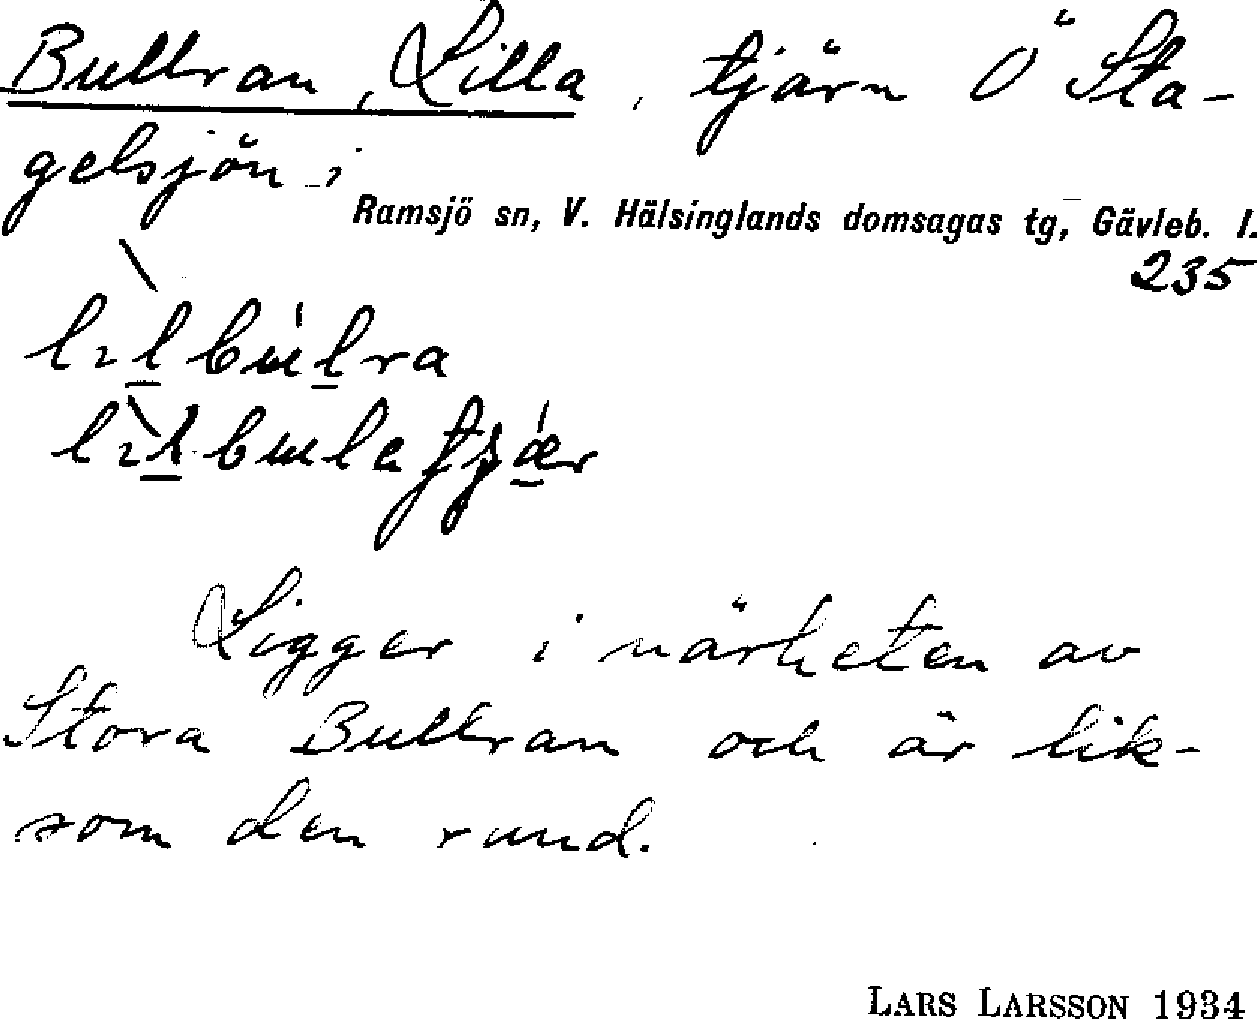 Bullran, Lilla, tjärn Ö Sta-
gelsjön i
Ramsjö sn, V. Hälsinglands domsagas tg, Gävleb. l.
235
Ligger i närheten av
Stora Bullran och är lik-
som den rund.
LARS LARSSON 1934